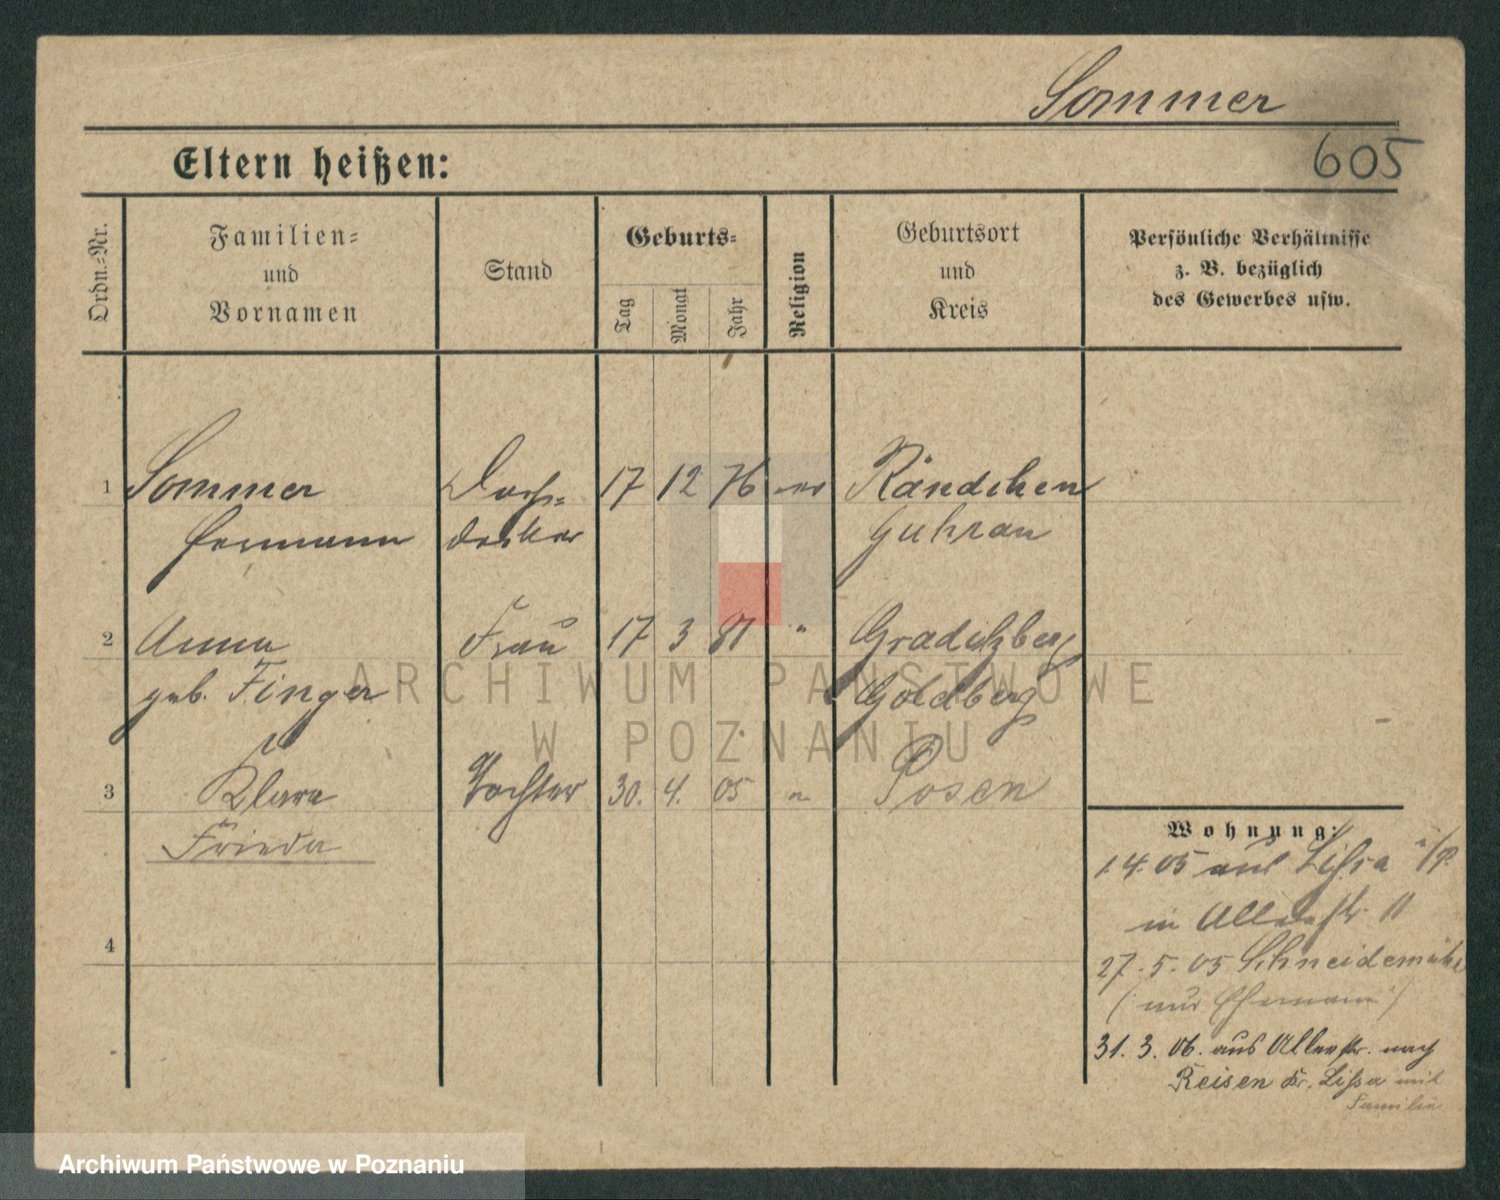 Sommer
605
Eltern heißen:
Ordn.-Nr.
Familien-
und
Vornamen
Stand
Geburts-
Tag
Monat
Jahr
Religion
Geburtsort
und
Kreis
Persönliche Verhältnisse
z. B. bezüglich
des Gewerbes usw.
1 Sommer Dach- 17 12 76 ev Rändchen
Hermann decker Guhrau
2 Anna Frau 17 3 81 " Graditzberg
geb. Finger Goldberg
3 Klara Tochter 30. 4. 05 " Posen
Frieda
4
Wohnung:
1.4.05 aus Lissa i/P.
in Allerstr. 11
27.5.05 Schneidemühl
(nur Ehemann)
31.3.06. aus Allerstr. nach
Reisen Kr. Lissa mit
Familie
ARCHIWUM PAŃSTWOWE
W POZNANIU
Archiwum Państwowe w Poznaniu